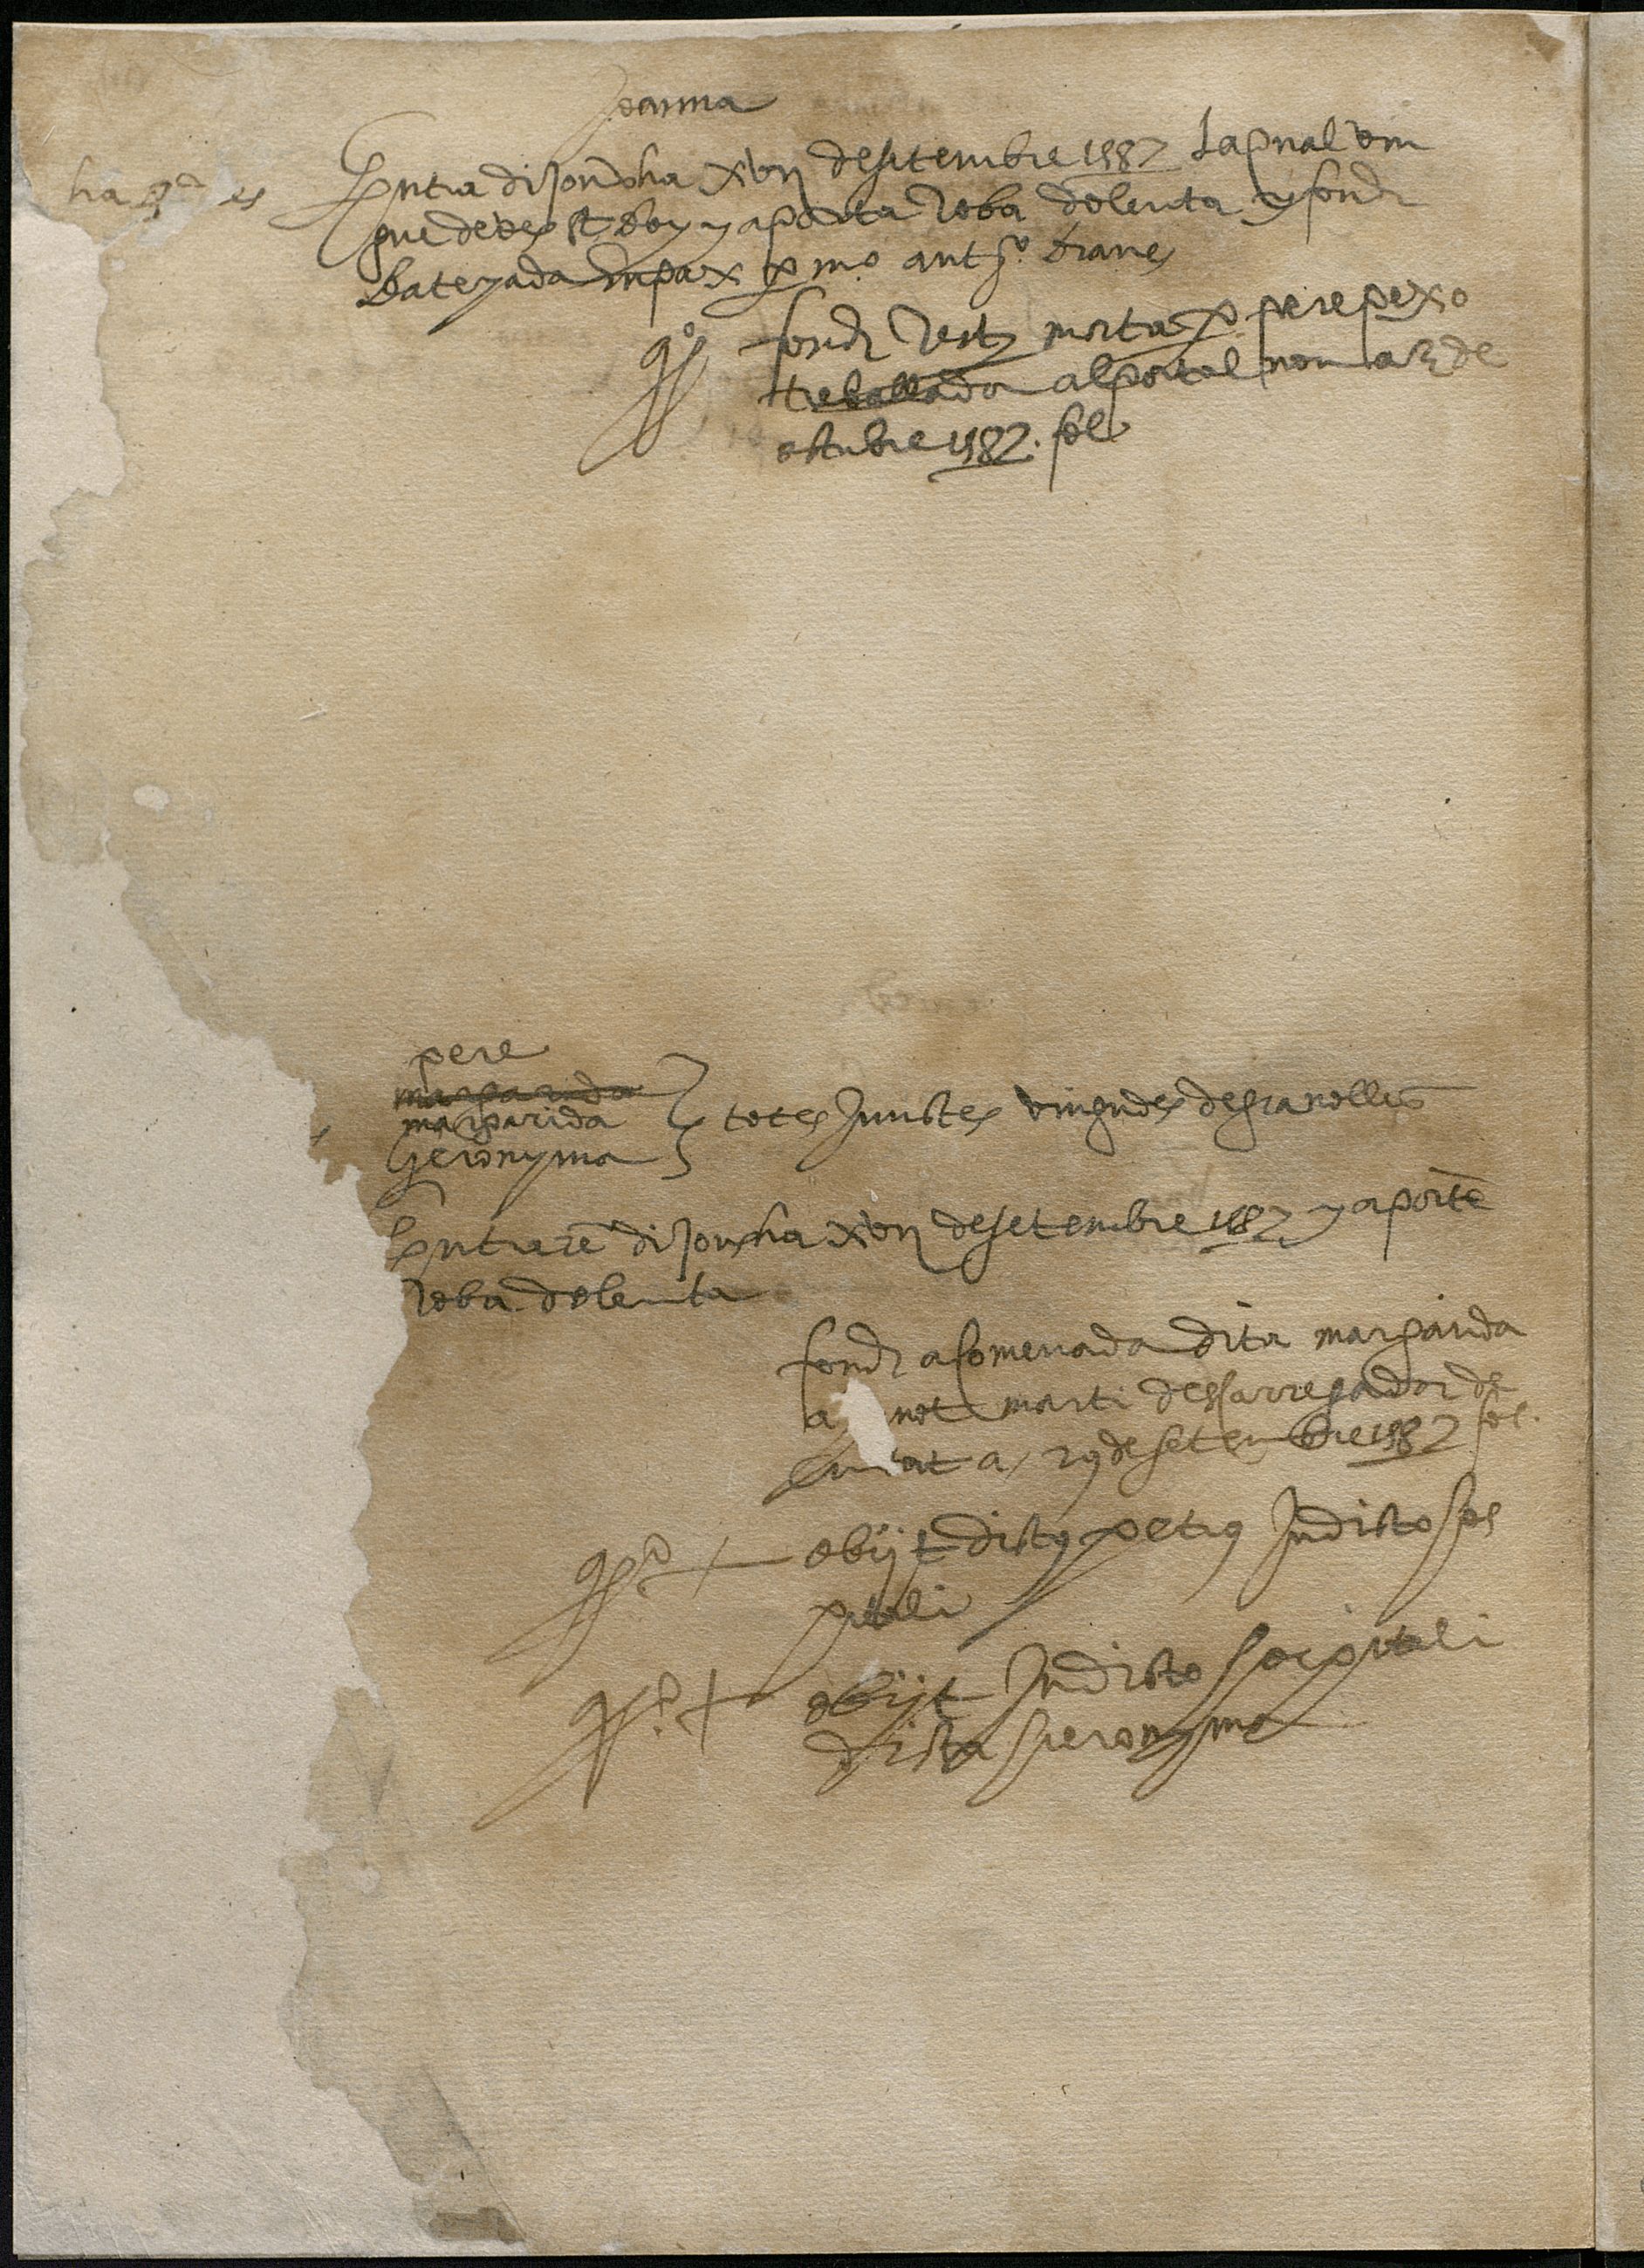 Joanna
Entra dijous ha xvij de setembre 1587 la qual vin
gue de vers st boy y aporta roba dolenta y fonch
batejada en pax per mo antº.
fonch rest morta per pere pexo
treballador al portal nou a 3 de
octubre 1587. fol
pere
margarida
margarida
Geronyma
totes Junctes vingudes de granolles
Entrarē dijous ha xvij de setembre 1587 y aportē
roba dolenta
fonch acomenada dita margarida
a not marti descarregador de
ciutat a 29 de setembre 1587 fol.
obijt dictus petrus In dicto hos
pitali
obijt In dicto hospitali
dicta hieronyma